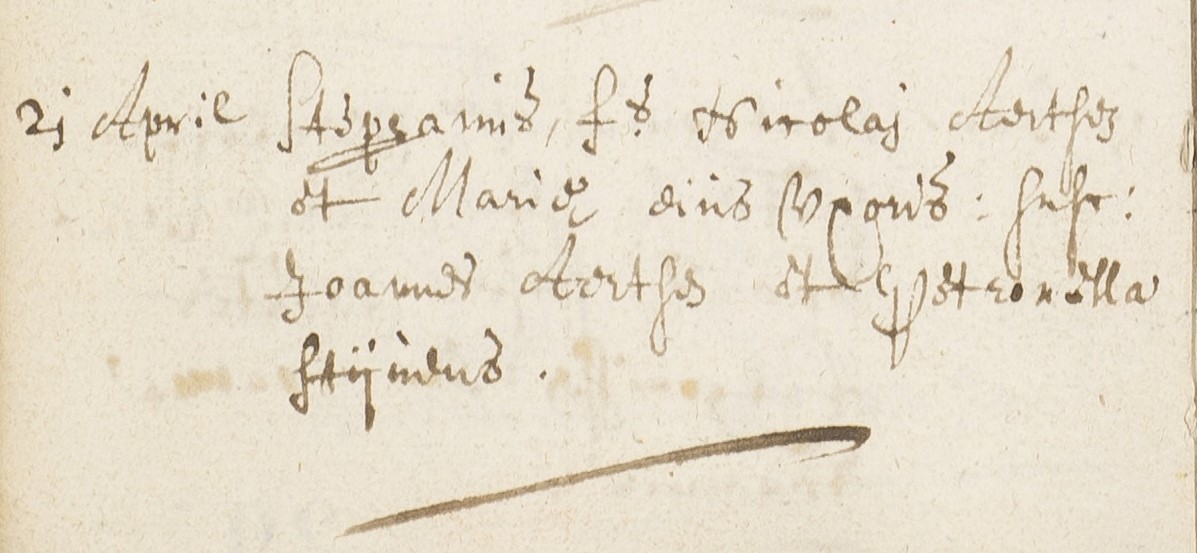 2j April Stephanus, fs Nicolaj Aertsen
et Mariæ eius Uxoris : susc:
Joannes Aertsen et Petronella
Stijnens .